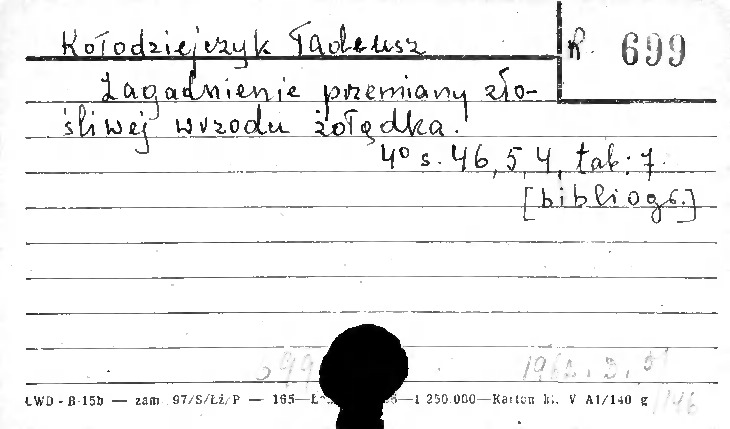 Kołodziejczyk Tadeusz
R. 699
Zagadnienie przemiany zło-
śliwej wrzodu żołędka.
4° s. 46, 5, 4, tab: 7.
[bibliogr.]
699
ŁWD - B-15b — zam. 97/S/Łż/P — 165— —1 250.000—Karton kl. V A1/140 g